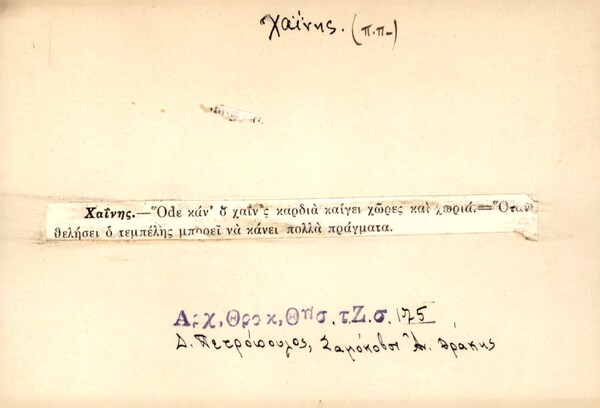 Χαΐνης. (π.π-)
Χαΐνης.—Ὅde κάν' ὁ χαΐν'ς καρδιὰ καίγει χῶρες καὶ χωριά.=Ὅταν
θελήσει ὁ τεμπέλης μπορεῖ νὰ κάνει πολλὰ πράγματα.
Αρχ, Θρακ, Θησ. τ. Ζ. σ. 175
Δ. Πετρόπουλος, Σαμόκοβον Ἀν. Θράκης